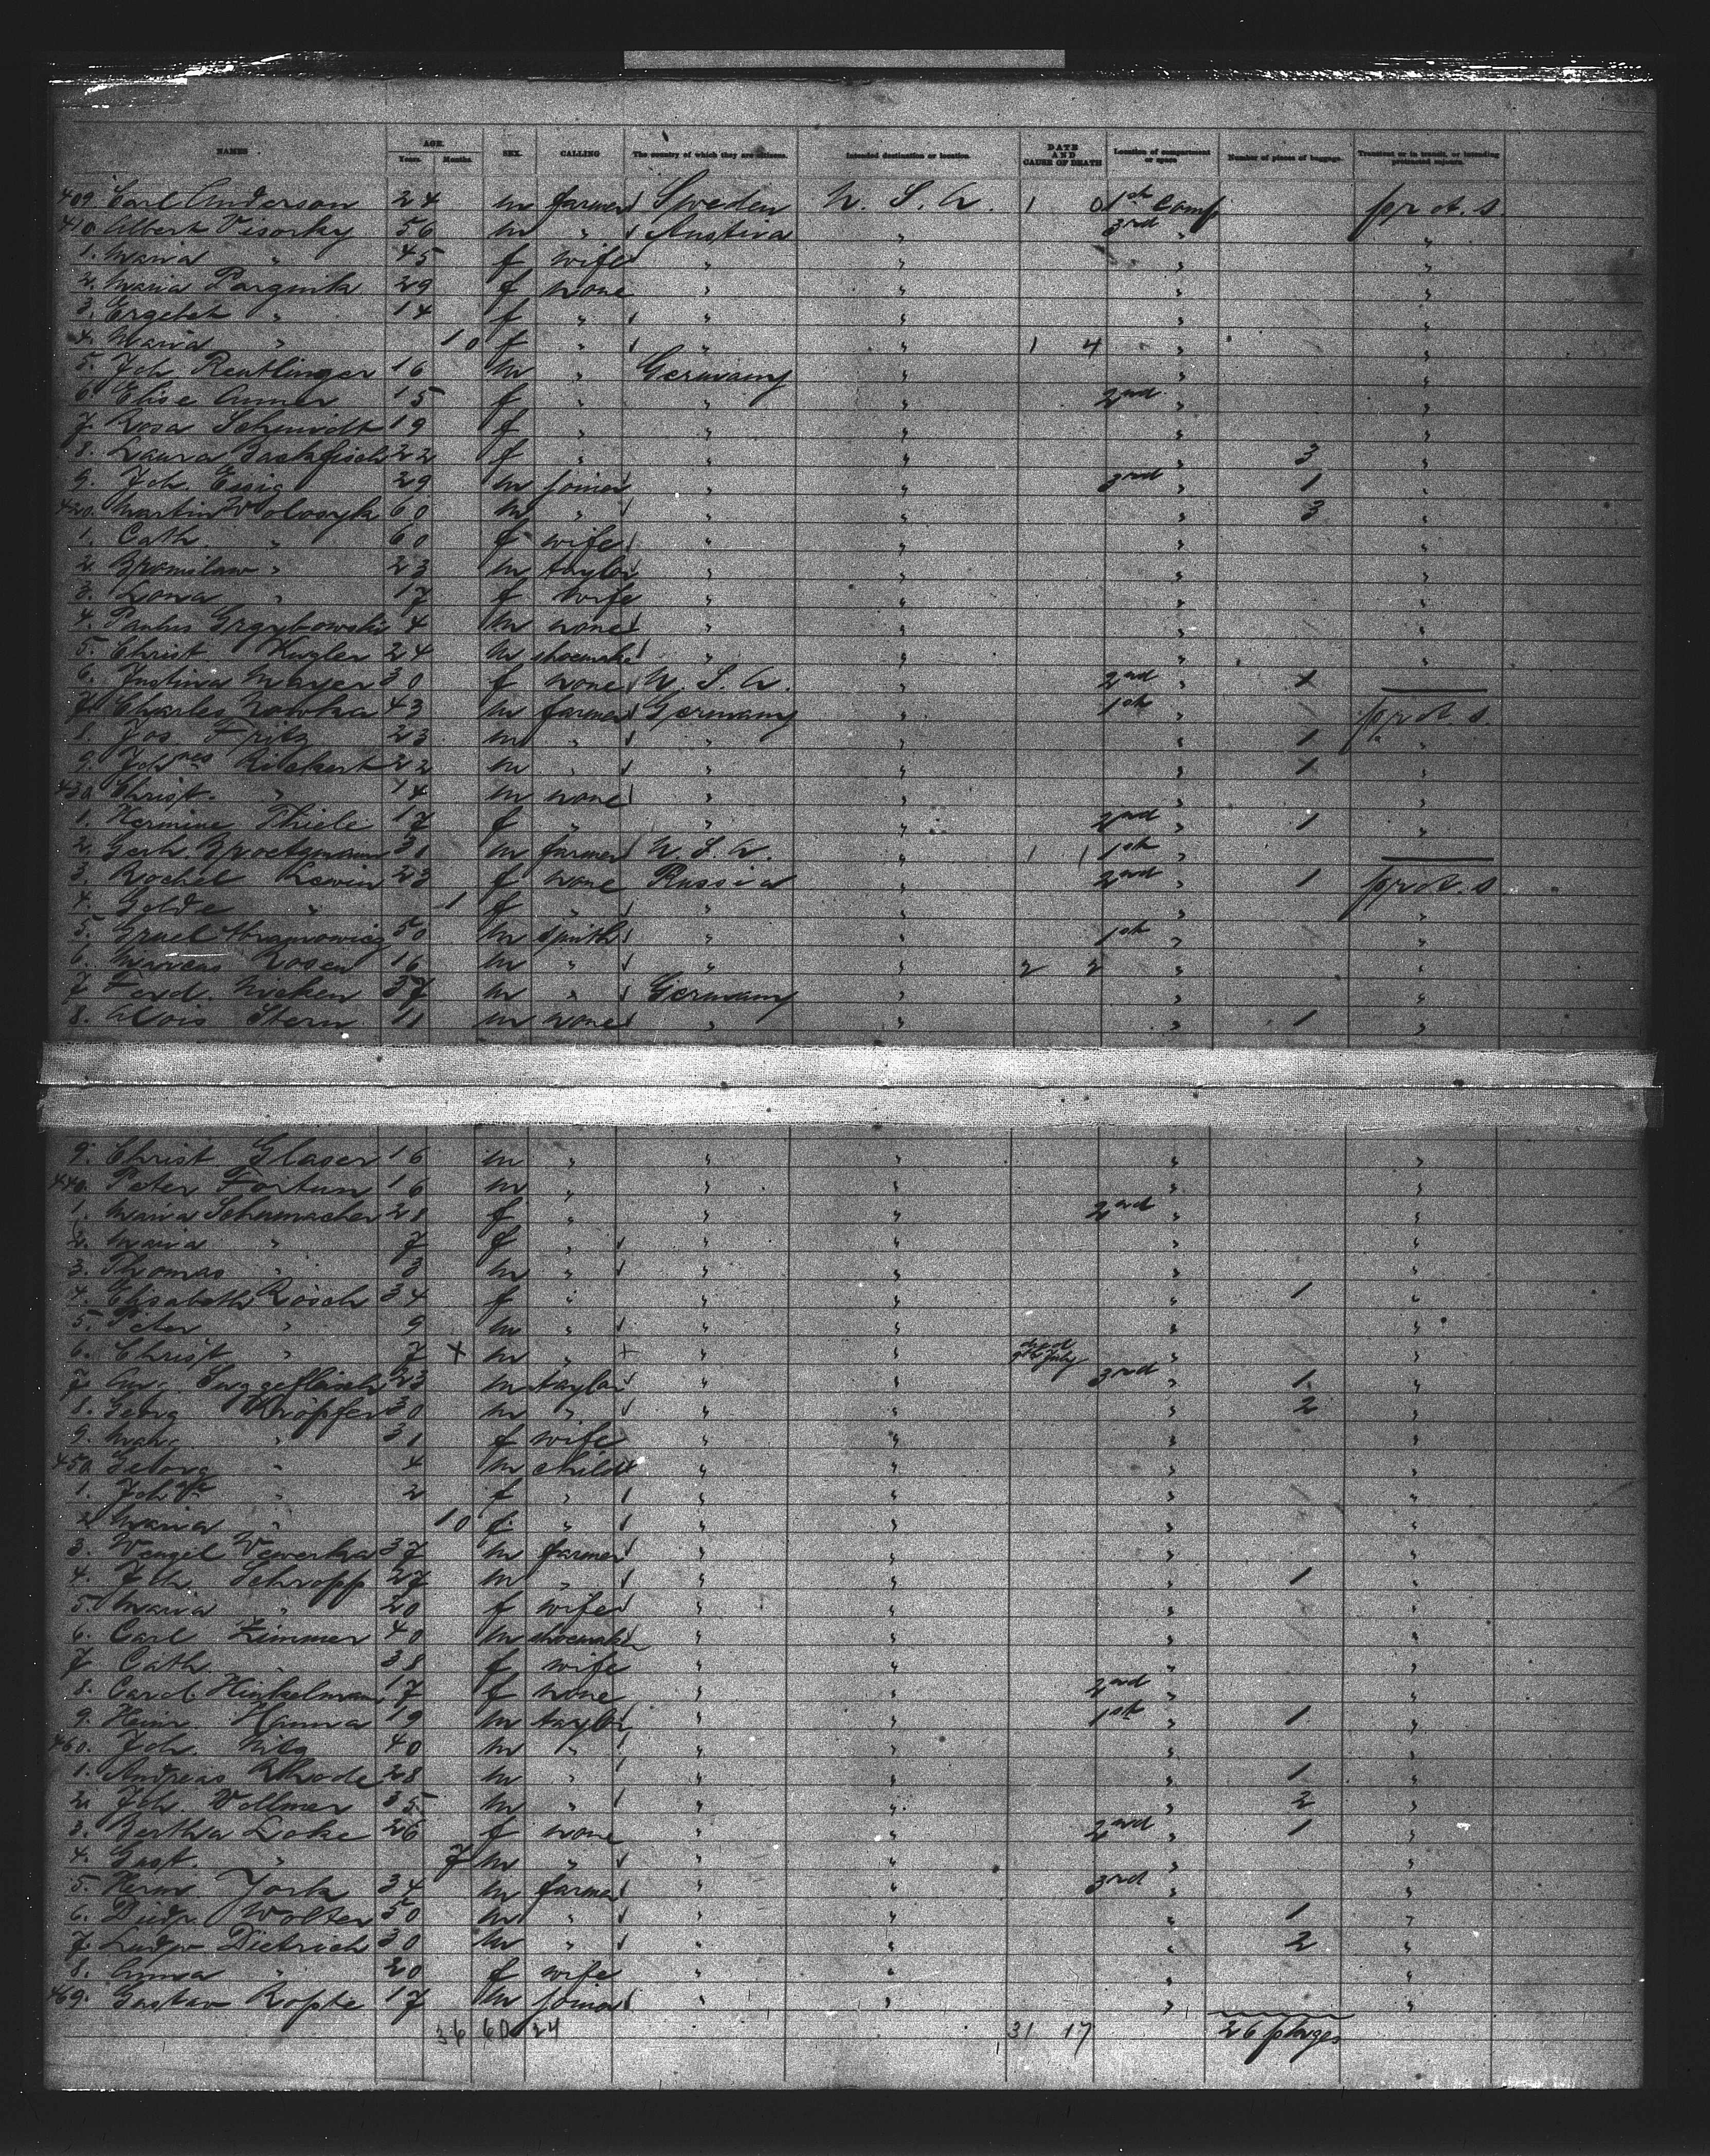 NAMES AGE. Years. Months. SEX. CALLING The country of which they are citizens. Intended destination or location. DATE AND CAUSE OF DEATH Location of compartment or space Number of pieces of baggage. Transient or in transit, or intending protracted sojourn.
409 Carl Anderson 24 m farmer Sweden U. S. A. 1 0 1st Comp prot. s.
410 Albert Visorky 56 m " Austria " 3rd " "
1. Maria " 45 f wife " " " "
2. Maria 29 f none " " " "
3. " 14 f " " " " "
4. Maria " 10 f " " " 1 4 " "
5. Joh Reutlinger 16 m " Germany " " "
6. Elise 15 f " " " 2nd " "
7. Rosa Schmidt 19 f " " " " "
8. Laura Backfisch 22 f " " " " 3 "
9. Joh. Essig 29 m joiner " " 3rd " 1 "
420. Martin Wolosyk 60 m " " " " 3 "
1. Cath. " 60 f wife " " " "
2. Bronislaw " 23 m taylor " " " "
3. " 17 f wife " " " "
4. Paulus Grzybowski 4 m none " " " "
5. Christ Kugler 24 m shoemaker " " " "
6. Justina Mayer 30 f none U. S. A. " 2nd " 1
7. Charles 43 m farmer Germany " 1st " prot. s.
8. Jos Fritz 23 m " " " " 1 "
9. Johnes Rickert 22 m " " " " 1 "
430. Christ. " 14 m none " " " "
1. Hermine Thiele 17 f " " " 2nd " 1 "
2. Gerh. 31 m farmer U. S. A. " 1 1 1st "
3. Rochel Lewin 23 f none Russia " 2nd " 1 prot. s
4. Golde " 1 f " " " " "
5. 50 m smith " " 1st " "
6. Marcus Rosen 16 m " " " 2 2 " "
7. Ferd. 37 m " Germany " " "
8. Alois Stern 11 m none " " " 1 "
9. Christ Glaser 16 m " " " " "
440. Peter Fortun 16 m " " " " "
1. Maria Schumacher 28 f " " " 2nd " "
2. Maria " 7 f " " " " "
3. Thomas " 3 m " " " " "
4. Elisabeth Rösch 34 f " " " " 1 "
5. Peter " 9 m " " " " "
6. Christ " 7 x m " " " died July " "
7. Aug. 23 m taylor " " 3rd " 1 "
8. Georg Knöpfer 30 m " " " " 2 "
9. Marg. " 31 f wife " " " "
450. Georg " 4 m child " " " "
1. " 2 f " " " " "
2. Maria " 10 f " " " " "
3. Wenzel Wewerka 37 m farmer " " " "
4. Joh. Schropp 27 m " " " " 1 "
5. Maria " 20 f wife " " " "
6. Carl Zimmer 40 m shoemaker " " " "
7. Cath. " 38 f wife " " " "
8. Carol. Hinkelmann 17 f none " " 2nd " "
9. Heinr. Hanna 19 m taylor " " 1st " 1 "
460. Joh. 40 m " " " " "
1. Andreas Rhode 28 m " " " " 1 "
2. Joh. Vollmer 35 m " " " " 2 "
3. Bertha Loke 26 f none " " 2nd " 1 "
4. Gust. " 7 m " " " " "
5. Herm York 34 m farmer " " 3rd " "
6. Wolter 50 m " " " " 1 "
7. Ludw Dietrich 30 m " " " " 2 "
8. Anna " 20 f wife " " " "
469. Gustav Ropte 17 m joiner " " " "
36 60 24 31 17 26